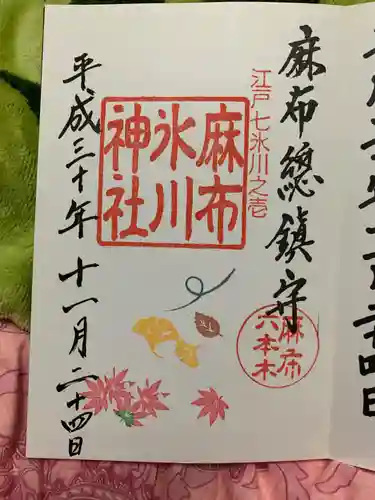 麻布總鎮守
江戸七氷川之壱
麻布
氷川
神社
麻布
六本木
平成三十年十一月二十四日